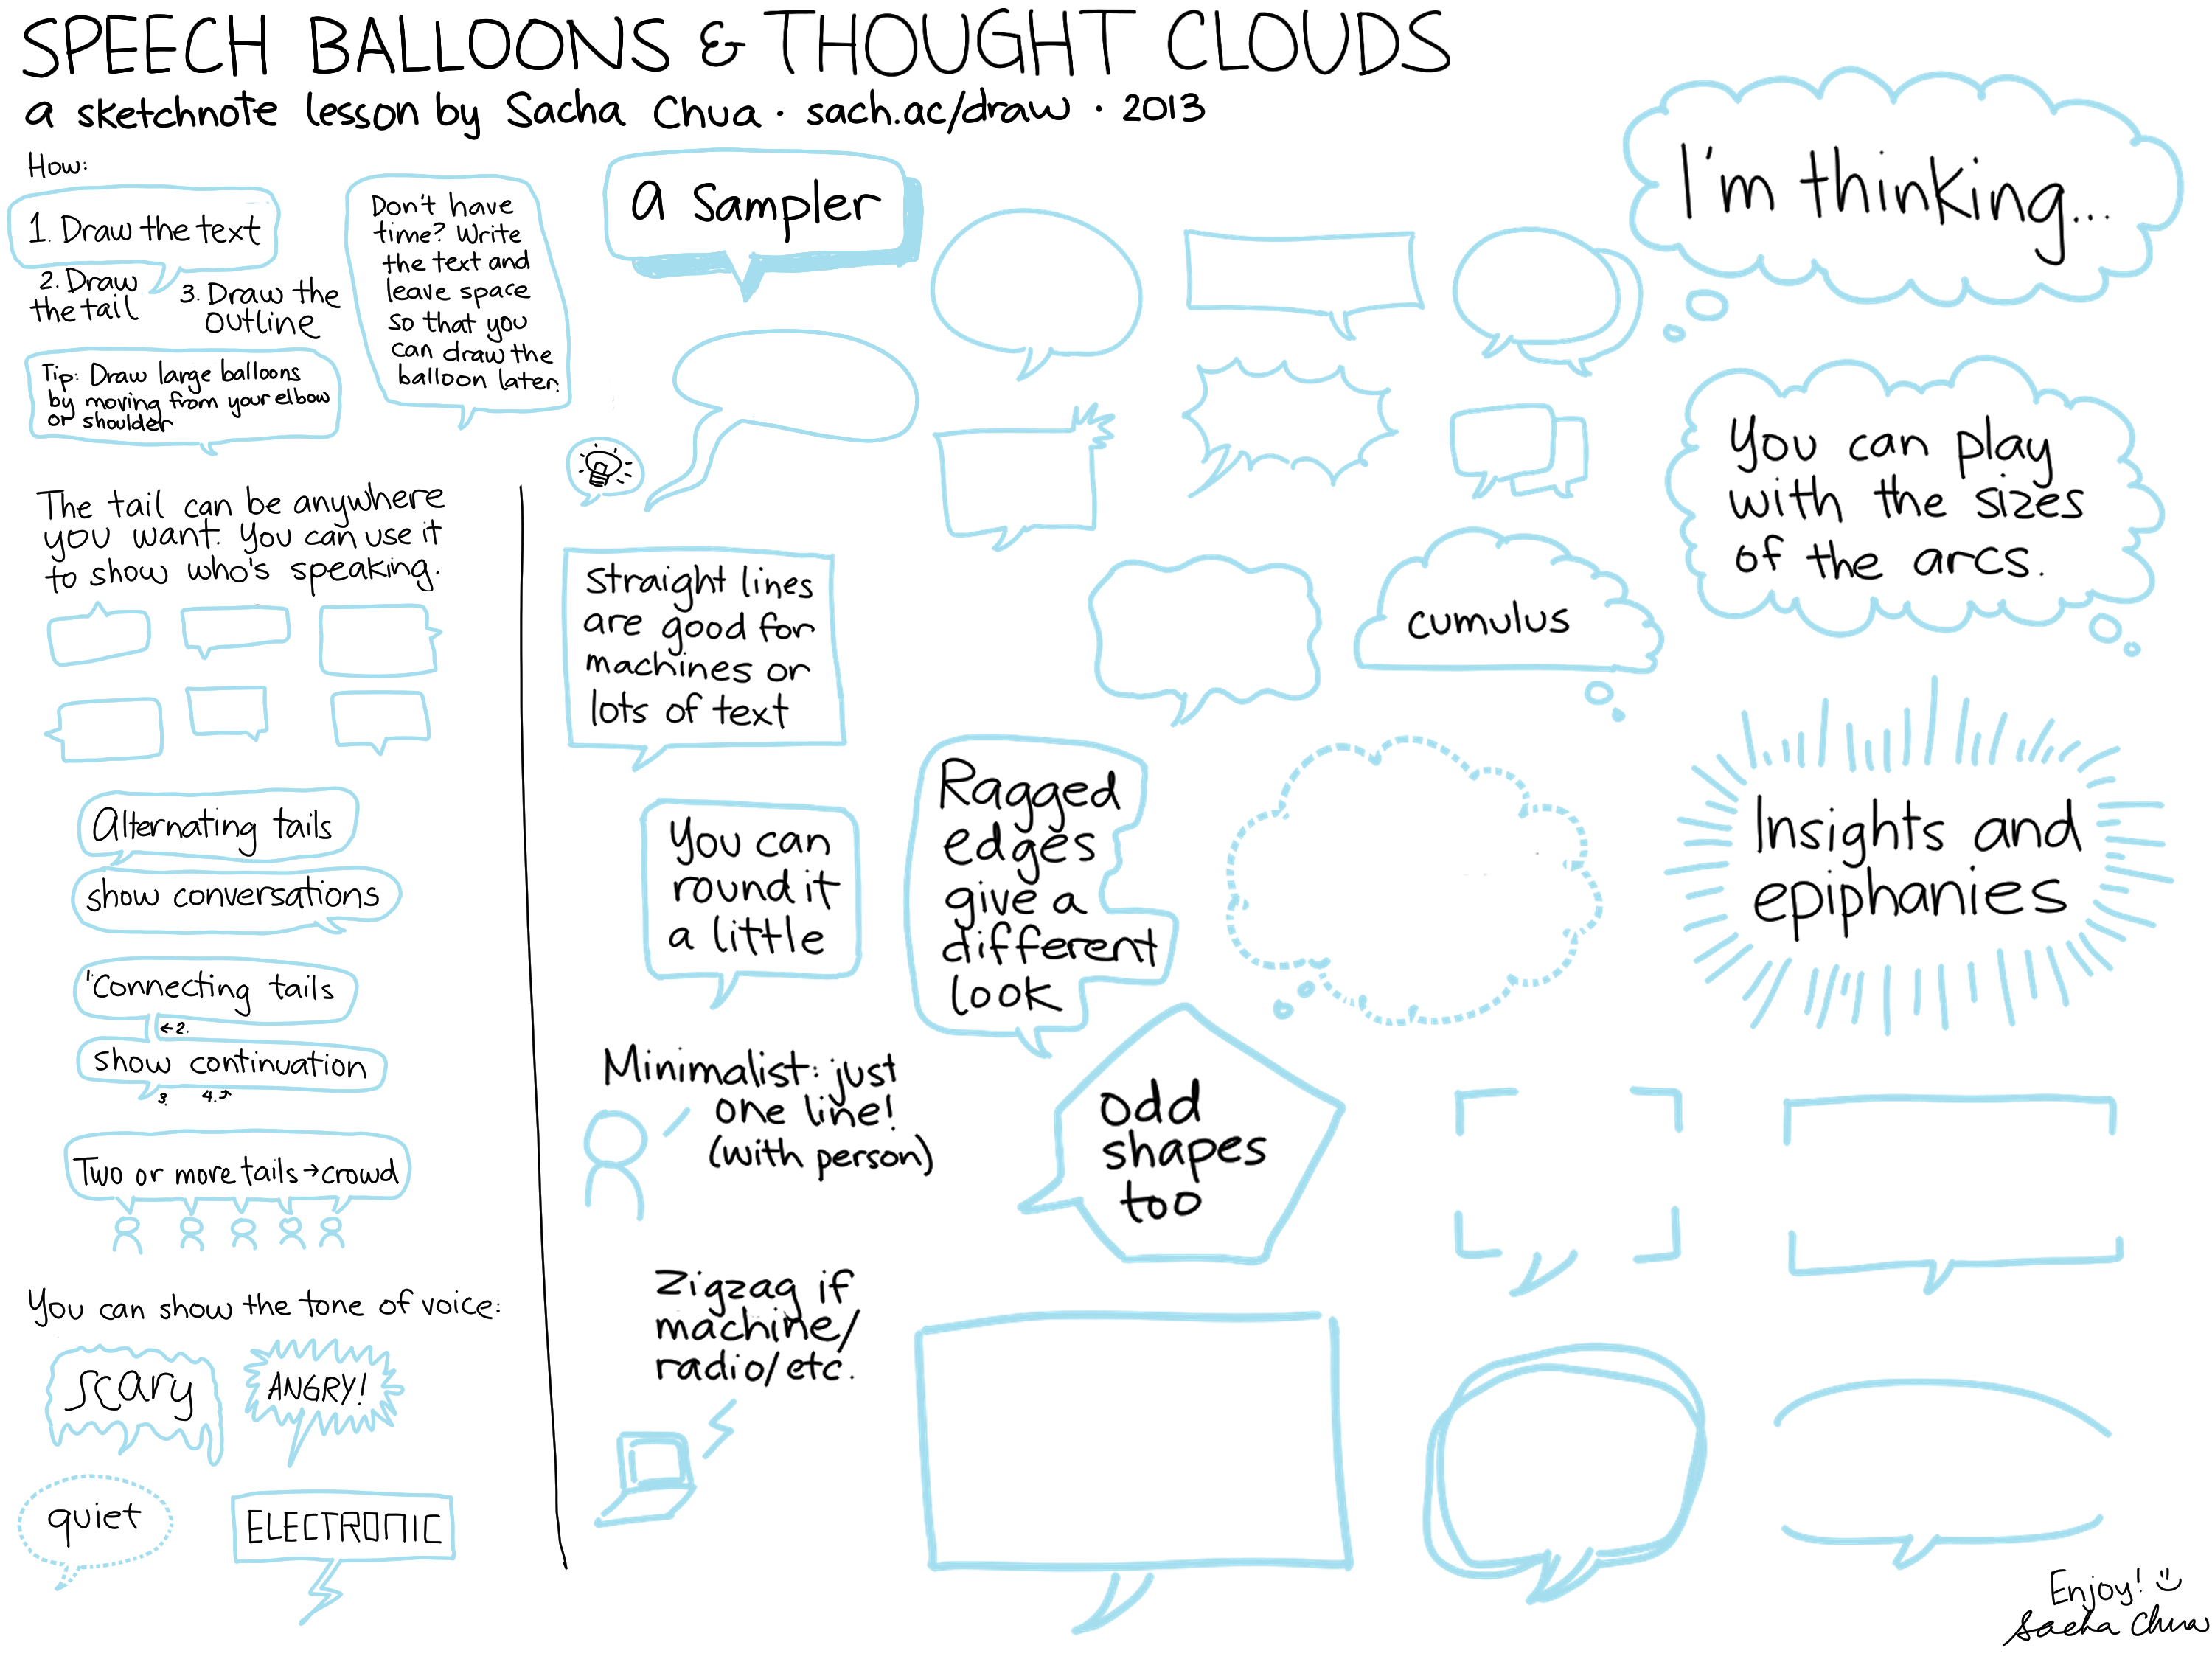 SPEECH BALLOONS & THOUGHT CLOUDS
a sketchnote lesson by Sacha Chua · sach.ac/draw · 2013
How:
1. Draw the text
2. Draw
the tail
3. Draw the
outline
Tip: Draw large balloons
by moving from your elbow
or shoulder
Don't have
time? Write
the text and
leave space
so that you
can draw the
balloon later.
The tail can be anywhere
you want. You can use it
to show who's speaking.
Alternating tails
show conversations
1. Connecting tails
←2.
show continuation
3. 4.↗
Two or more tails → crowd
You can show the tone of voice:
scary
ANGRY!
quiet
ELECTRONIC
a sampler
straight lines
are good for
machines or
lots of text
You can
round it
a little
Ragged
edges
give a
different
look
Minimalist: just
one line!
(with person)
Zigzag if
machine/
radio/etc.
odd
shapes
too
I'm thinking...
You can play
with the sizes
of the arcs.
cumulus
Insights and
epiphanies
Enjoy! :)
Sacha Chua